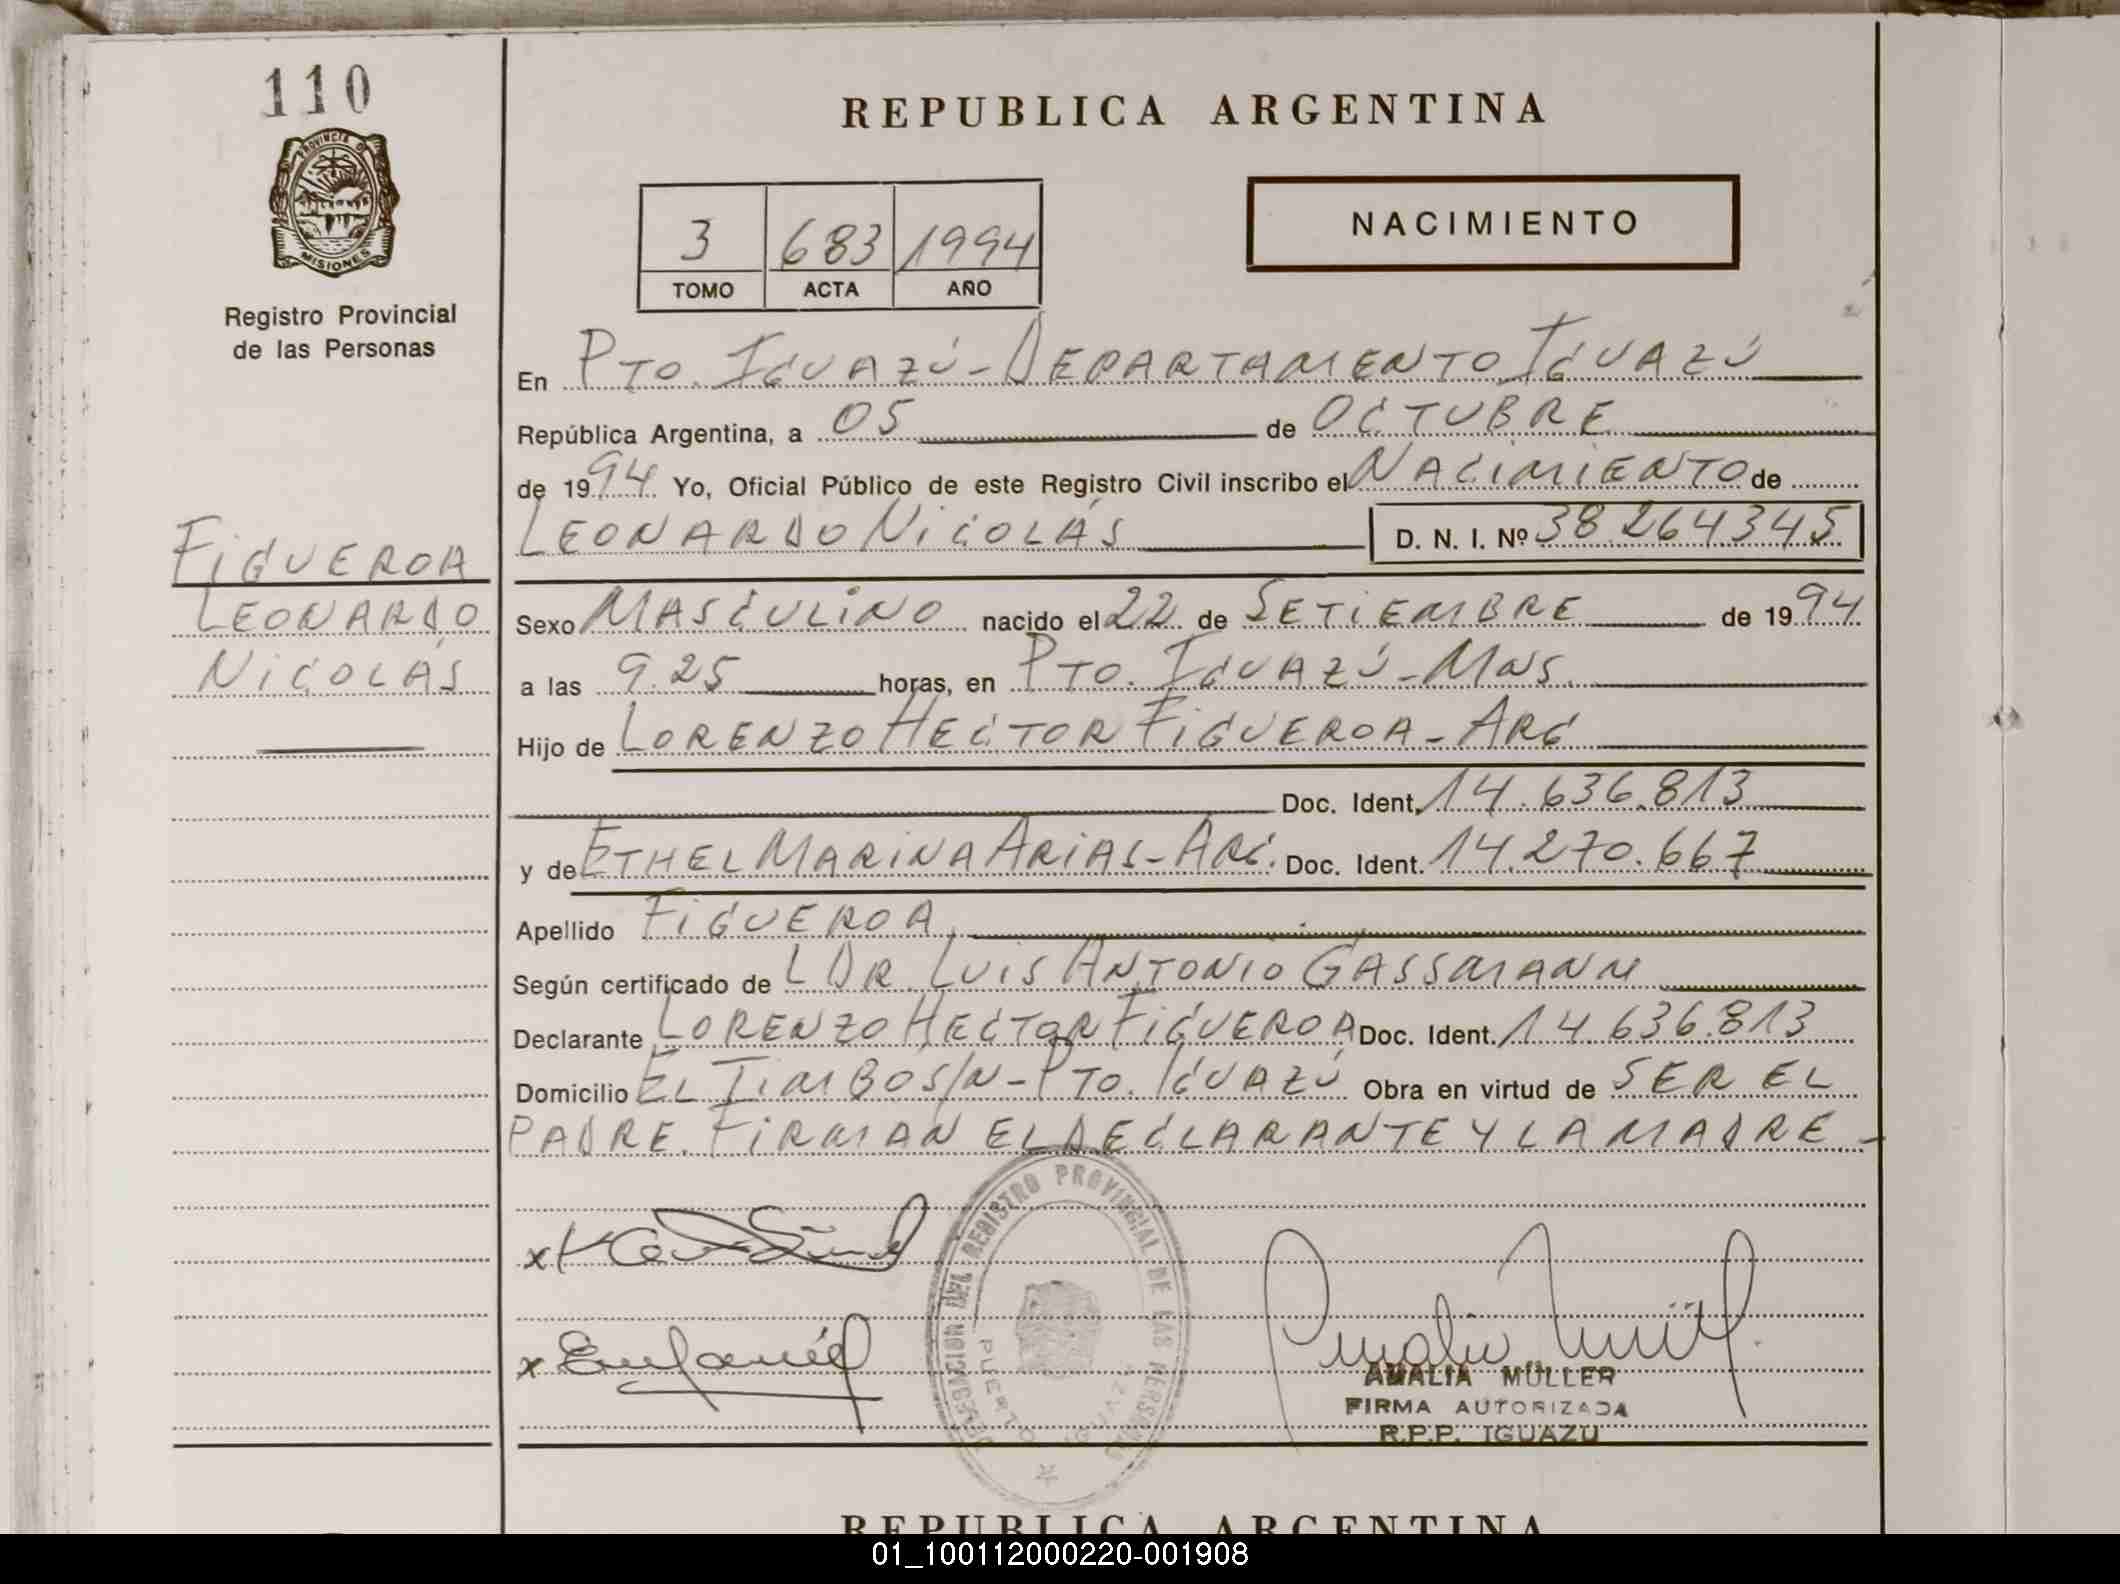 110
PROVINCIA DE
MISIONES
Registro Provincial
de las Personas
FIGUEROA
LEONARDO
NICOLÁS
REPUBLICA ARGENTINA
3 683 1994
TOMO ACTA AÑO
NACIMIENTO
En PTO. IGUAZÚ - DEPARTAMENTO IGUAZÚ
República Argentina, a 05 de OCTUBRE
de 1994 Yo, Oficial Público de este Registro Civil inscribo el NACIMIENTO de
LEONARDO NICOLÁS D. N. I. Nº 38264345
Sexo MASCULINO nacido el 22 de SETIEMBRE de 1994
a las 9.25 horas, en PTO. IGUAZÚ - MNS.
Hijo de LORENZO HECTOR FIGUEROA - ARG
Doc. Ident. 14.636.813
y de ETHEL MARINA ARIAS - ARG. Doc. Ident. 14.270.667
Apellido FIGUEROA
Según certificado de DR. LUIS ANTONIO GASSMANN
Declarante LORENZO HECTOR FIGUEROA Doc. Ident. 14.636.813
Domicilio EL TIMBÓ S/N - PTO. IGUAZÚ Obra en virtud de SER EL
PADRE. FIRMAN EL DECLARANTE Y LA MADRE -
x
x
DELEGACION DEL REGISTRO PROVINCIAL DE LAS PERSONAS
PUERTO IGUAZU
Amalia Müller
AMALIA MÜLLER
FIRMA AUTORIZADA
R.P.P. IGUAZU
REPUBLICA ARGENTINA
01_100112000220-001908